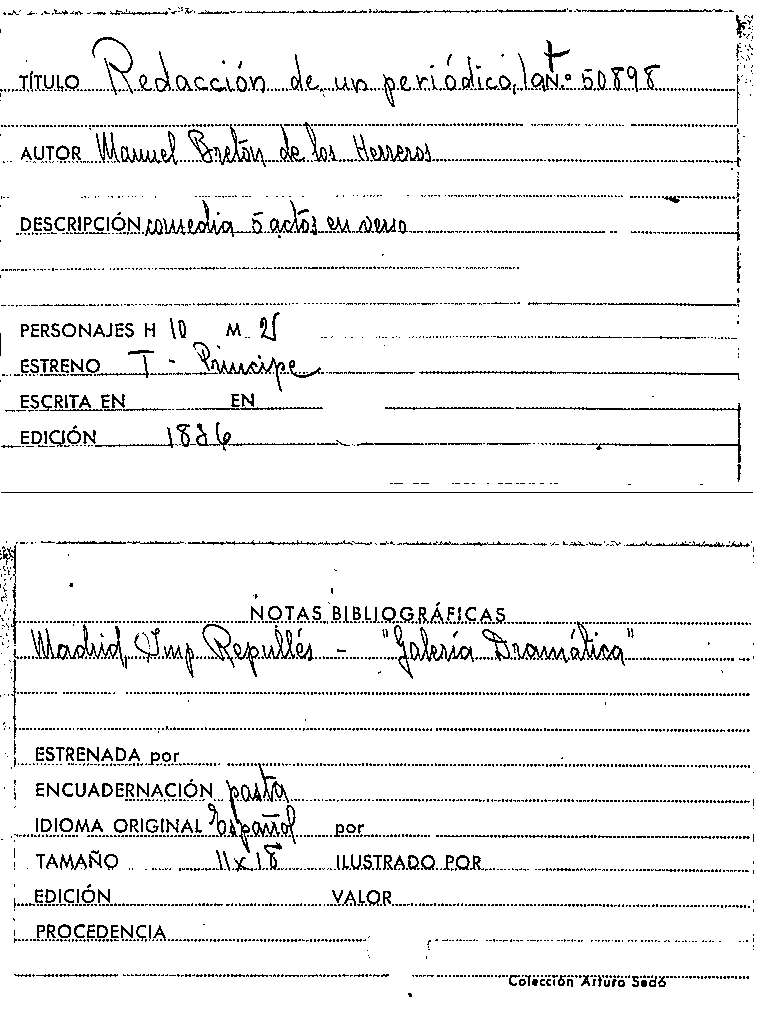 TÍTULO Redacción de un periódico, la N.º 50898
AUTOR Manuel Bretón de los Herreros
DESCRIPCIÓN comedia 5 actos en verso
PERSONAJES H 10 M
ESTRENO T - Principe
ESCRITA EN EN
EDICIÓN 1836
NOTAS BIBLIOGRÁFICAS
Madrid, Imp Repullés - "Galería Dramática"
ESTRENADA por
ENCUADERNACIÓN pasta
IDIOMA ORIGINAL Español por
TAMAÑO 11x18 ILUSTRADO POR
EDICIÓN VALOR
PROCEDENCIA
Colección Arturo Sedó